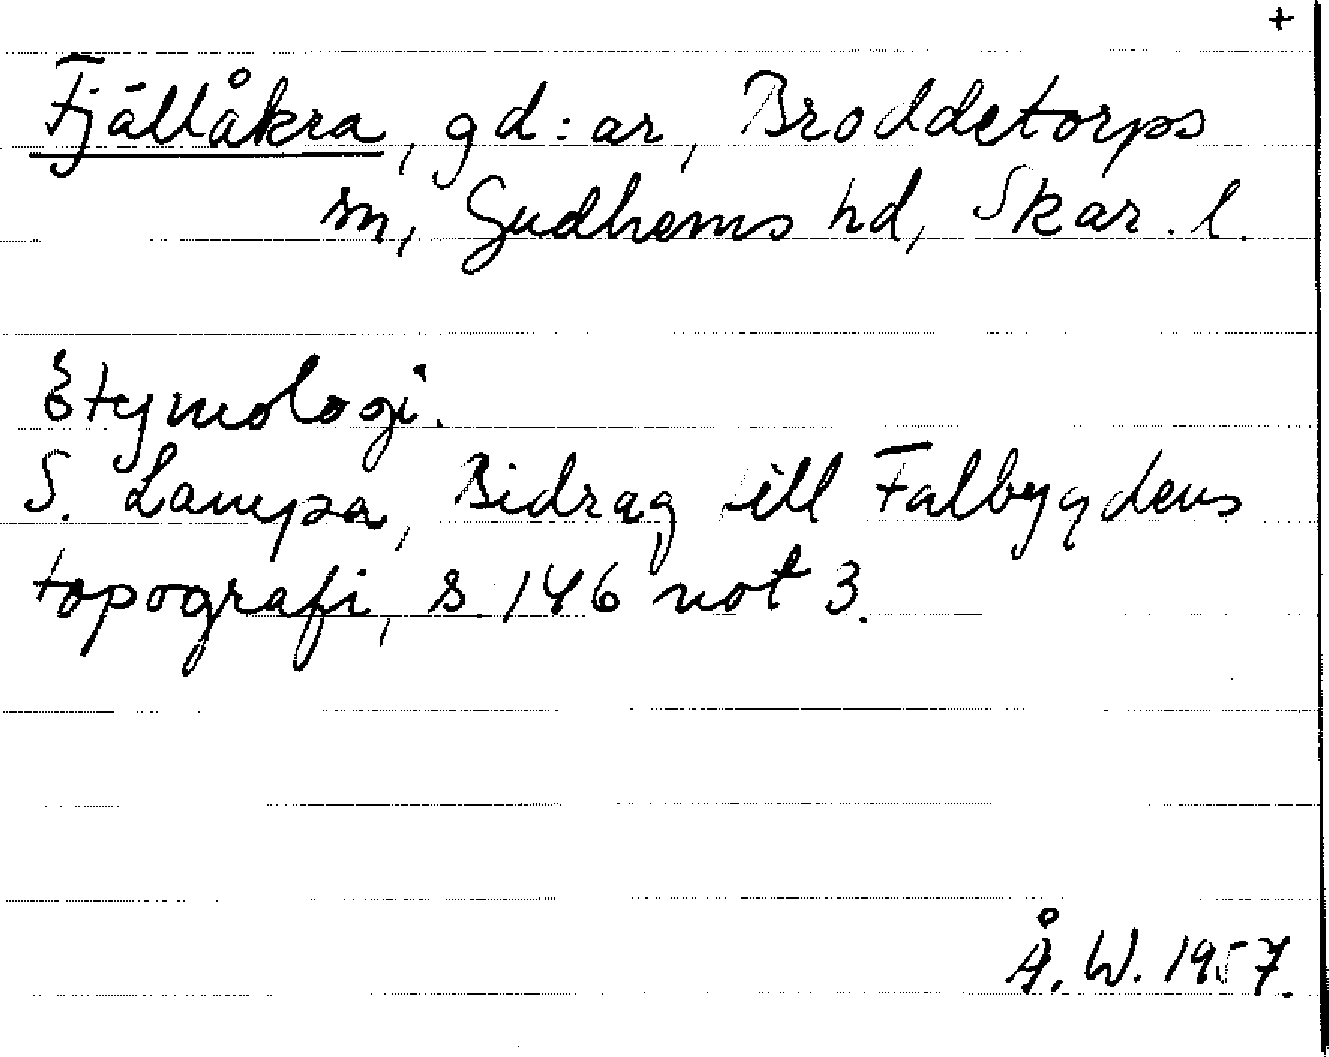 +
Fjällåkra, gd:ar, Broddetorps
sn, Gudhems hd, Skar. l.
Etymologi.
S. Lampa, Bidrag till Falbygdens
topografi, s. 146 not 3.
Å. W. 1957.